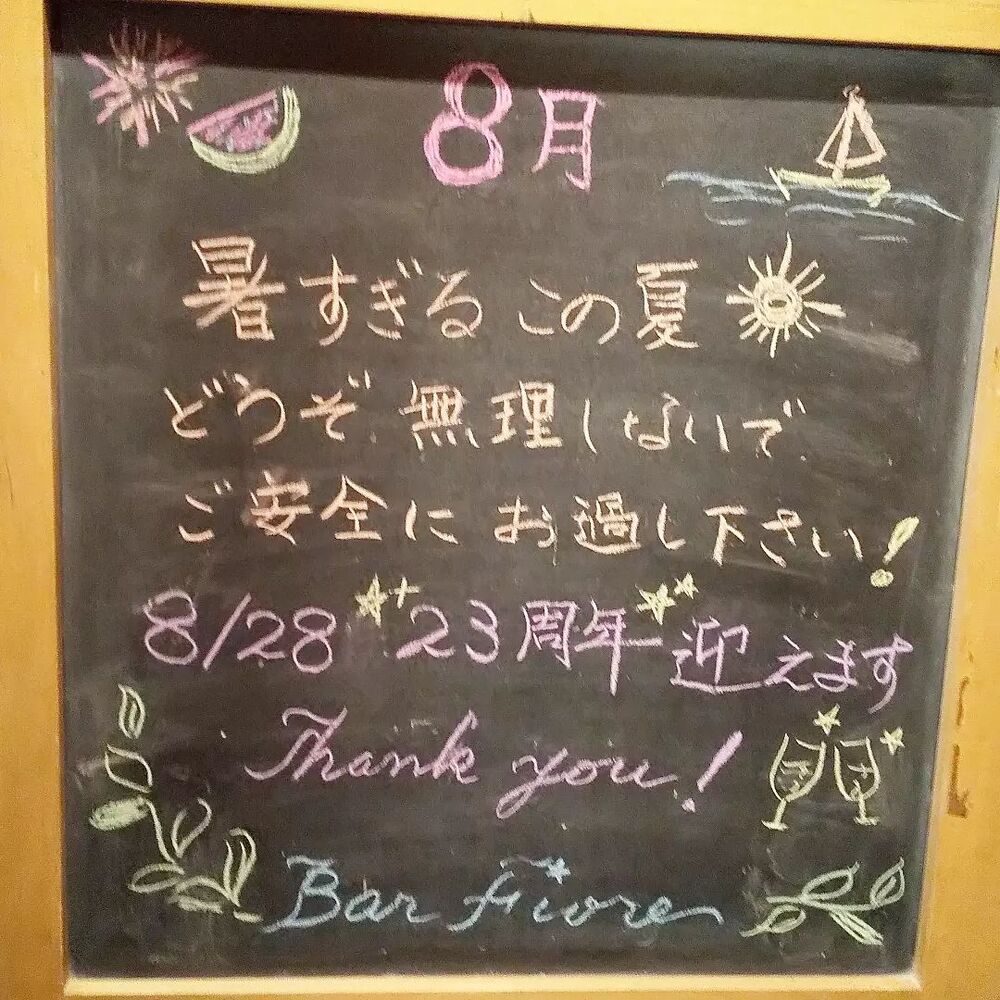 8月
暑すぎる この夏
どうぞ 無理しないで
ご安全に お過し下さい!
8/28 23周年迎えます
Thank you!
Bar Fiore